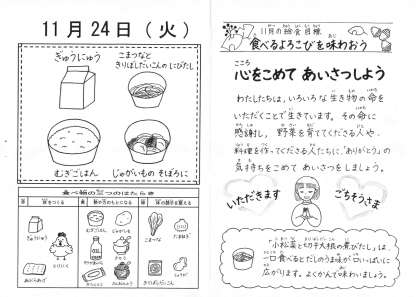 11月24日(火)
ぎゅうにゅう
こまつなと
きりぼしだいこんの にびたし
むぎごはん
じゃがいもの そぼろに
食べ物の三つのはたらき
ぎゅうにゅう
むぎごはん
じゃがいも
こまつな
たまねぎ
とりにく
あぶらあげ
きりぼしだいこん
11月の給食目標
食べるよろこびを味わおう
こころ
心をこめて あいさつしよう
わたしたちは、いろいろな生き物の命を
いただくことで生きています。その命に
感謝し、野菜を育ててくださる人や、
料理を作ってくださる人たちに「ありがとう」の
気持ちをこめて あいさつをしましょう。
いただきます
ごちそうさま
「小松菜と切干大根の煮びたし」は、
一口食べるとだしのうま味が口いっぱいに
広がります。よくかんで味わいましょう。